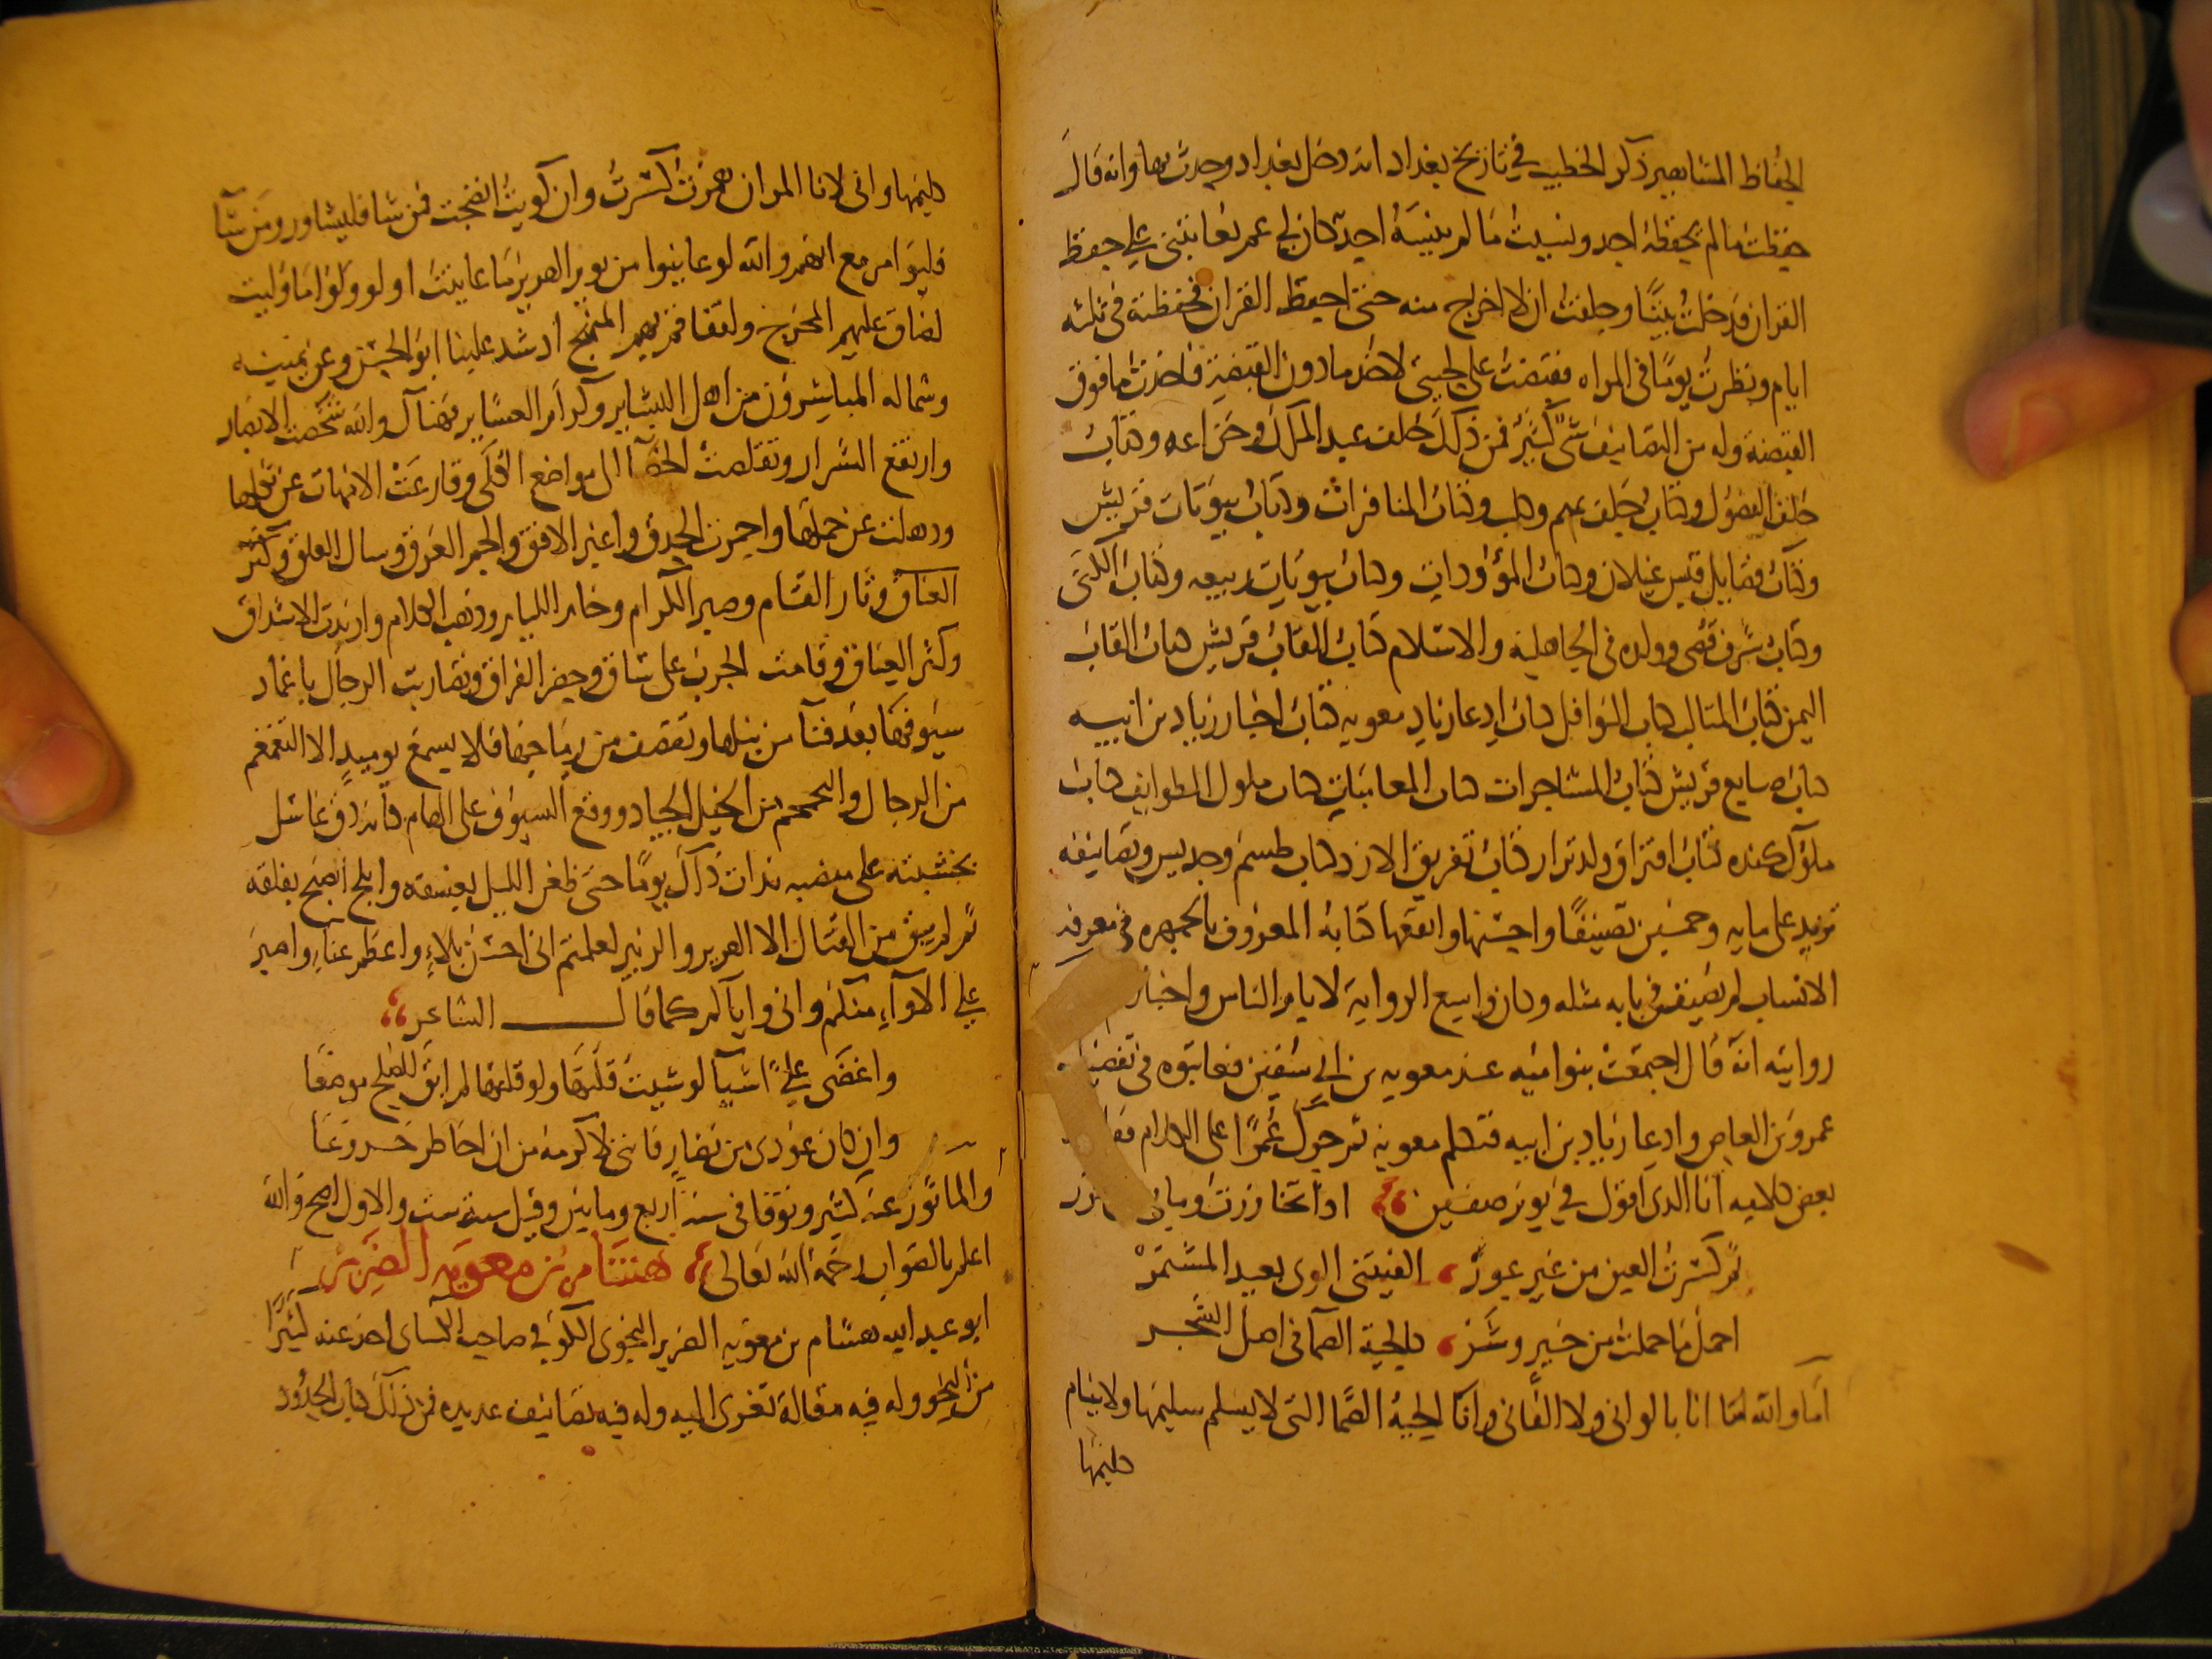 الحفاظ المشاهير ذكر الخطيب في تاريخ بغداد انه دخل بغداد وحدث بها وانه قال
حفظت ما لم يحفظه احد ونسيت ما لم ينسه احد كان لي عم يعاتبني على حفظ
القران فدخلت بيتا وحلفت ان لا اخرج منه حتى احفظ القران فحفظته في ثلثه
ايام ونظرت يوما في المراه فقبضت على لحيتي لاخذ ما دون القبضة فاخذت ما فوق
القبضة وله من التصانيف شي كثير فمن ذلك حلف عبد المطلب وخزاعه وكتاب
حلف الفضول وكتاب حلف تميم وكلب وكتاب المنافرات وكتاب بيوتات قريش
وكتاب فضايل قيس غيلان وكتاب الموؤودات وكتاب بيوتات ربيعه وكتاب الكنى
وكتاب شرف قصى وولده في الجاهلية والاسلام كتاب القاب قريش كتاب القاب
اليمن كتاب المثالب كتاب النوافل كتاب ادعا زياد معويه كتاب اخبار زياد بن ابيه
كتاب صنايع قريش كتاب المشاجرات كتاب المعاتبات كتاب ملوك الطوايف كتاب
ملوك كنده كتاب افتراق ولد نزار كتاب تفريق الازد كتاب طسم وجديس وتصانيفه
تزيد على مايه وخمسين تصنيفا واحسنها وانفعها كتابه المعروف بالجمهره في معرفه
الانساب لم يصنف في بابه مثله وكان واسع الرواية لايام الناس واخبارهم
روايته انه قال اجتمعت بنو اميه عند معويه بن ابي سفين فعاتبوه في تفضيل
عمرو بن العاص وادعا زياد بن ابيه فتكلم معويه ثم حرك عمرا على الكلام فقال
بعض كلامه انا الذي اقول في يوم صفين اذا تخازرت وما بي من خزر
ثم كسرت العين من غير عور الفيتني الوى بعيد المستمر
احمل ما حملت من خير وشر كالحية الصما في اصل الشجر
اما والله ما انا بالواني ولا الفاني وانا الحية الصما التي لا يسلم سليمها ولا ينام
كليمها
كليمها واني لانا المر ان همزت كسرت وان كويت انضجت فمن شا فليشاور ومن شا
فليوامر مع انهم والله لو عاينوا من يوم الهرير ما عاينت او لو ولوا ما وليت
لضاق عليهم المخرج ولتفاقم بهم المنهج اذ شد علينا ابو الحسن وعن يمينه
وشماله المباشرون من اهل البشاير وكرام العشاير فهناك والله شخصت الابصار
وارتفع الشرار وتقلصت الخصا الى مواضع الكلى وقارعت الامهات عن ثكلها
وذهلت عن حملها واحمرت الحدق واغبر الافق والجم العرق وسال العلق وكثر
العناق وثار القتام وصبر الكرام وخام الليام وذهب الكلام وازبدت الاشداق
وكثر العناق وقامت الحرب على ساق وحضر الفراق وتضاربت الرجال باغماد
سيوفها بعد فنا من نبلها وتقصف من رماحها فلا يسمع يوميذ الا التغمغم
من الرجال والتحمحم من الخيل الجياد ووقع السيوف على الهام كانه دق غاسل
بخشبته على منصبه بذات ذاك يوما حتى ظعن الليل بغسقه وابلج الصبح بفلقه
ثم لم يبق من القتال الا الهرير والزئير لعلمتم اني احسن بلاء واعظم غناء واصبر
على الاواء منكم واني واياكم كما قال الشاعر
واغضى على اشيا لو شيت قلتها ولو قلتها لم ابق للصلح موضعا
وان كان عودي من نضار فانني لاكرمه من ان اخاطر خروعا
والماثور عنه كثير وتوفا في سنة اربع وماتين وقيل سنة ست والاول اصح والله
اعلم بالصواب رحمه الله تعالى هشام بن معويه الضرير
ابو عبد الله هشام بن معويه الضرير النحوي الكوفي صاحب الكساي اخذ عنه كثيرا
من النحو وله فيه مقالة تعزى اليه وله فيه تصانيف عديده فمن ذلك كتاب الحدود